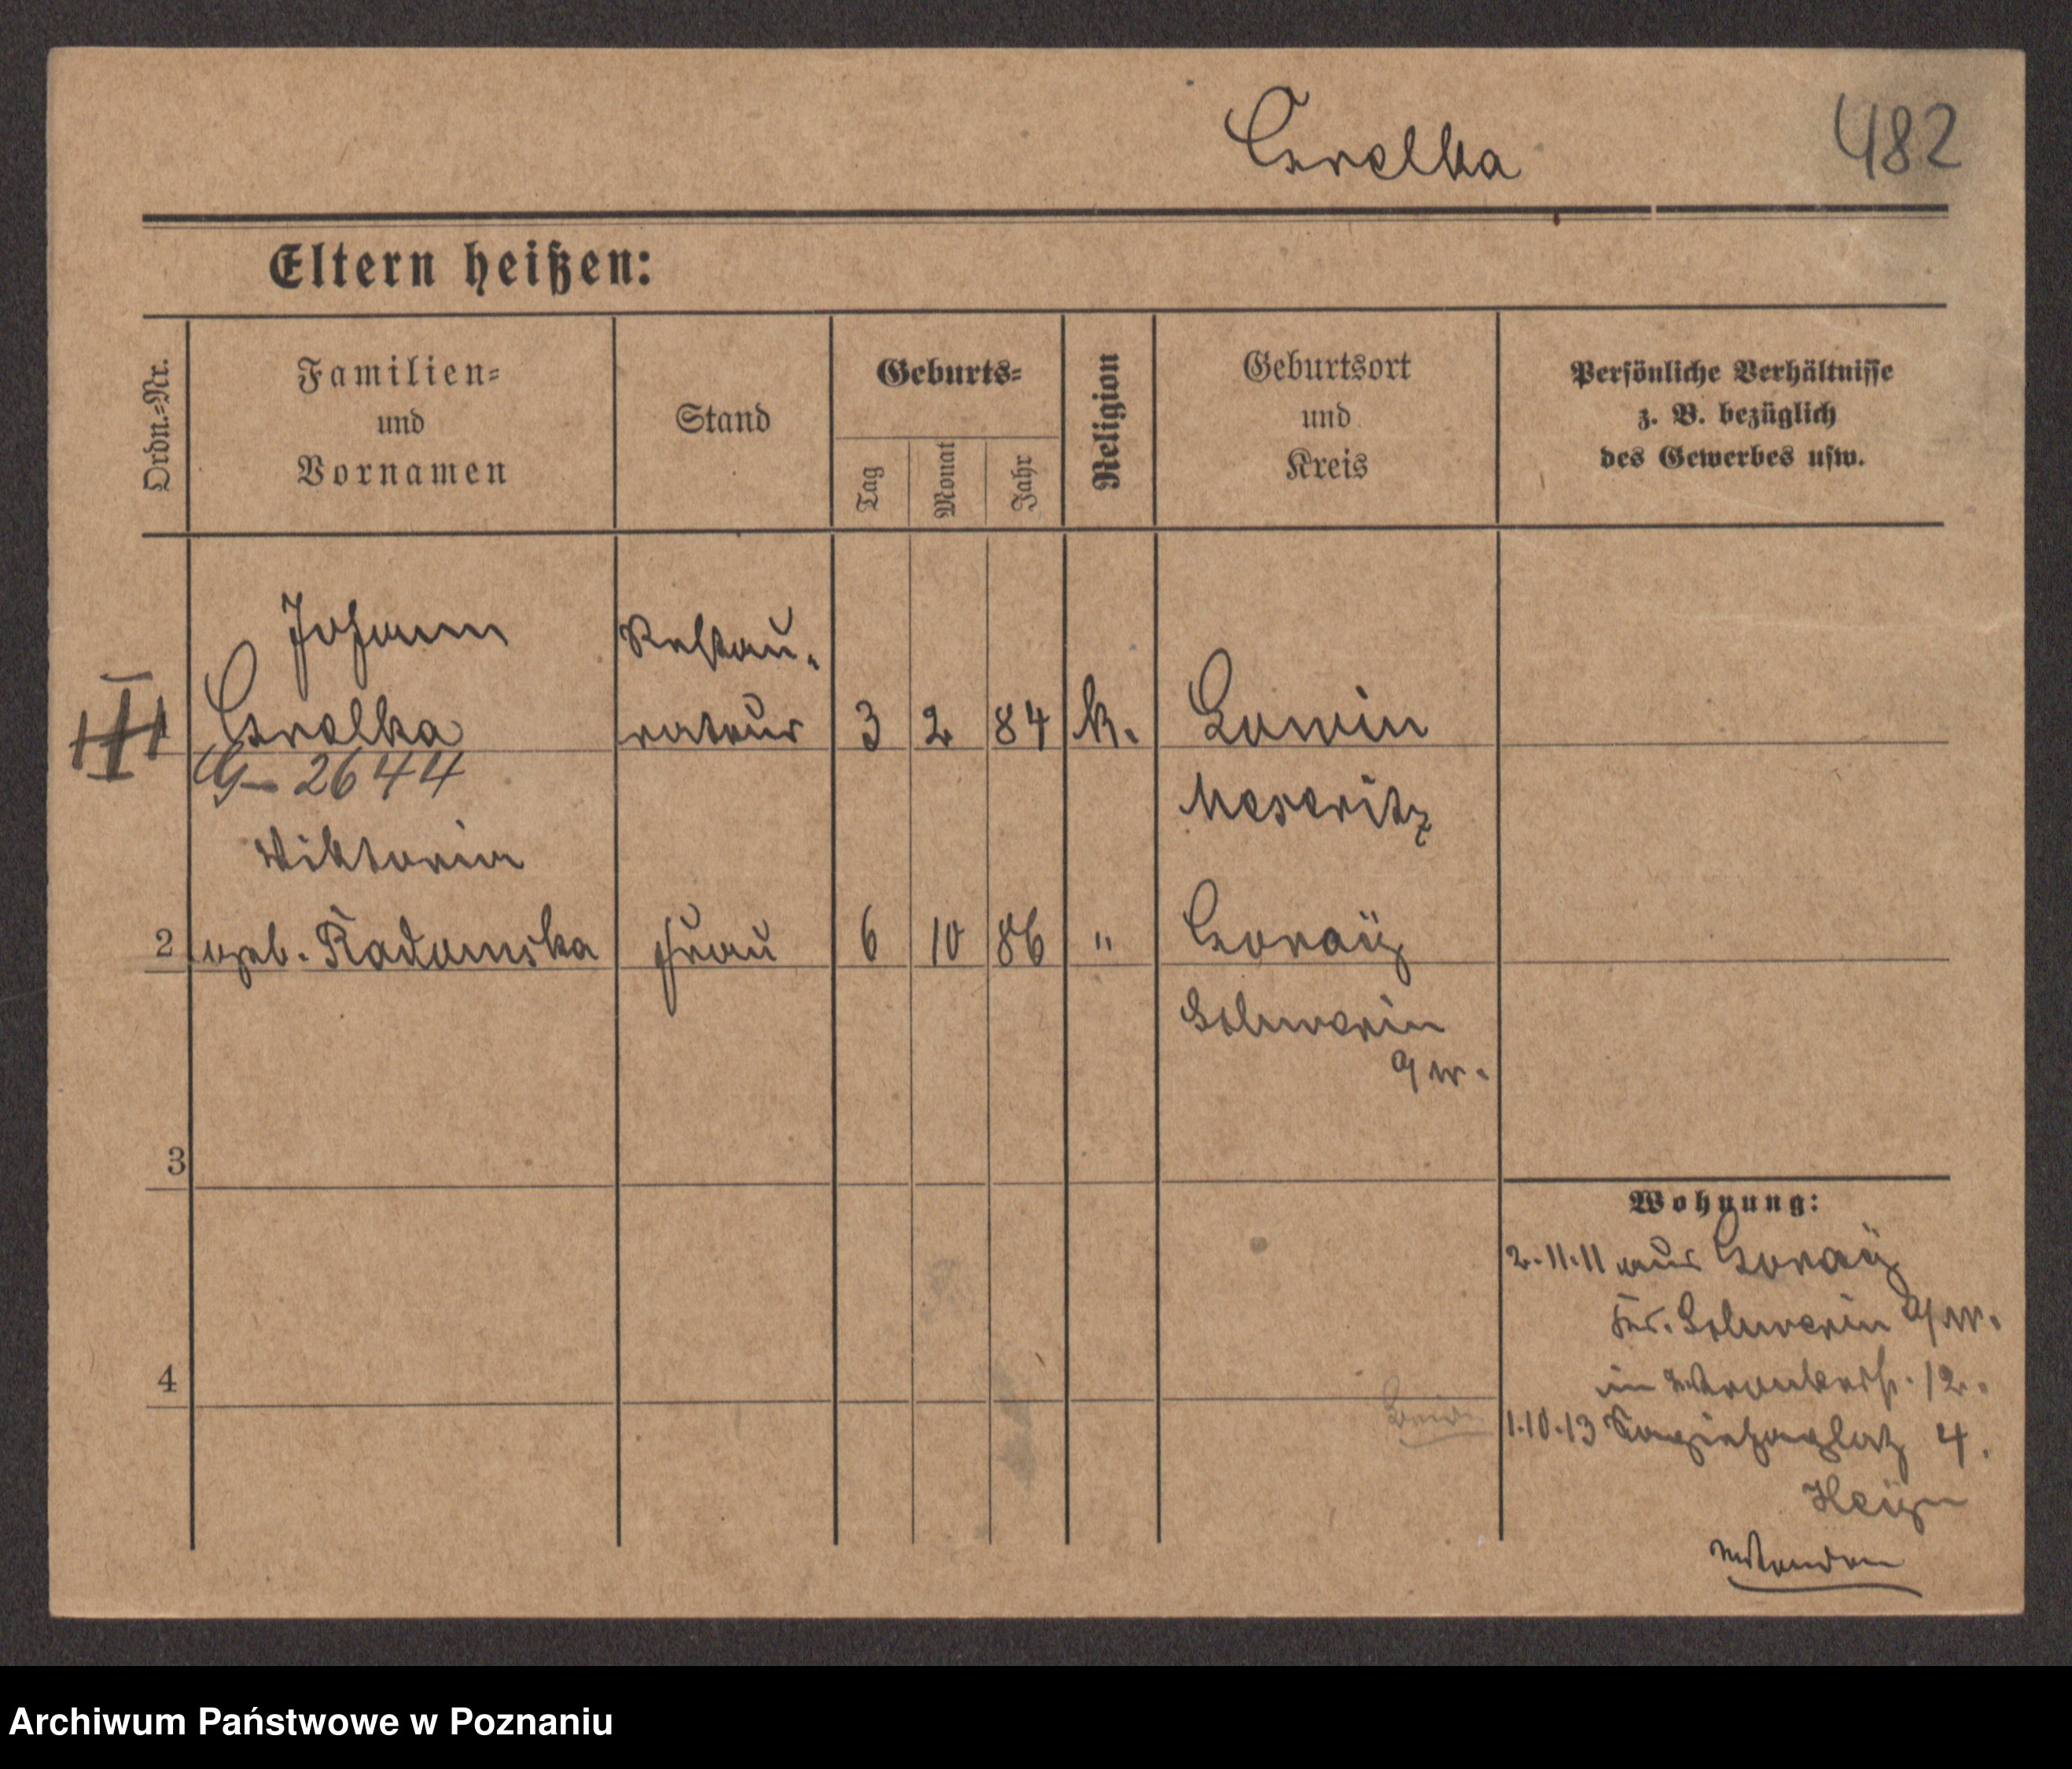 Grelka
482
Eltern heißen:
Ordn.-Nr.
Familien-
und
Vornamen
Stand
Geburts-
Tag
Monat
Jahr
Religion
Geburtsort
und
Kreis
Persönliche Verhältnisse
z. B. bezüglich
des Gewerbes usw.
Johann
Grelka
Restau-
rateur
3 2 84 k.
Lowin
Meseritz
2644
Viktoria
2 geb. Radomska
Frau
6 10 86 "
Goray
Schwerin
a/W.
3
4
Wohnung:
2.11.11 aus Goray
Krs. Schwerin a/W.
in Wronkerstr. 12.
1.10.13 Sapiehaplatz 4.
Archiwum Państwowe w Poznaniu